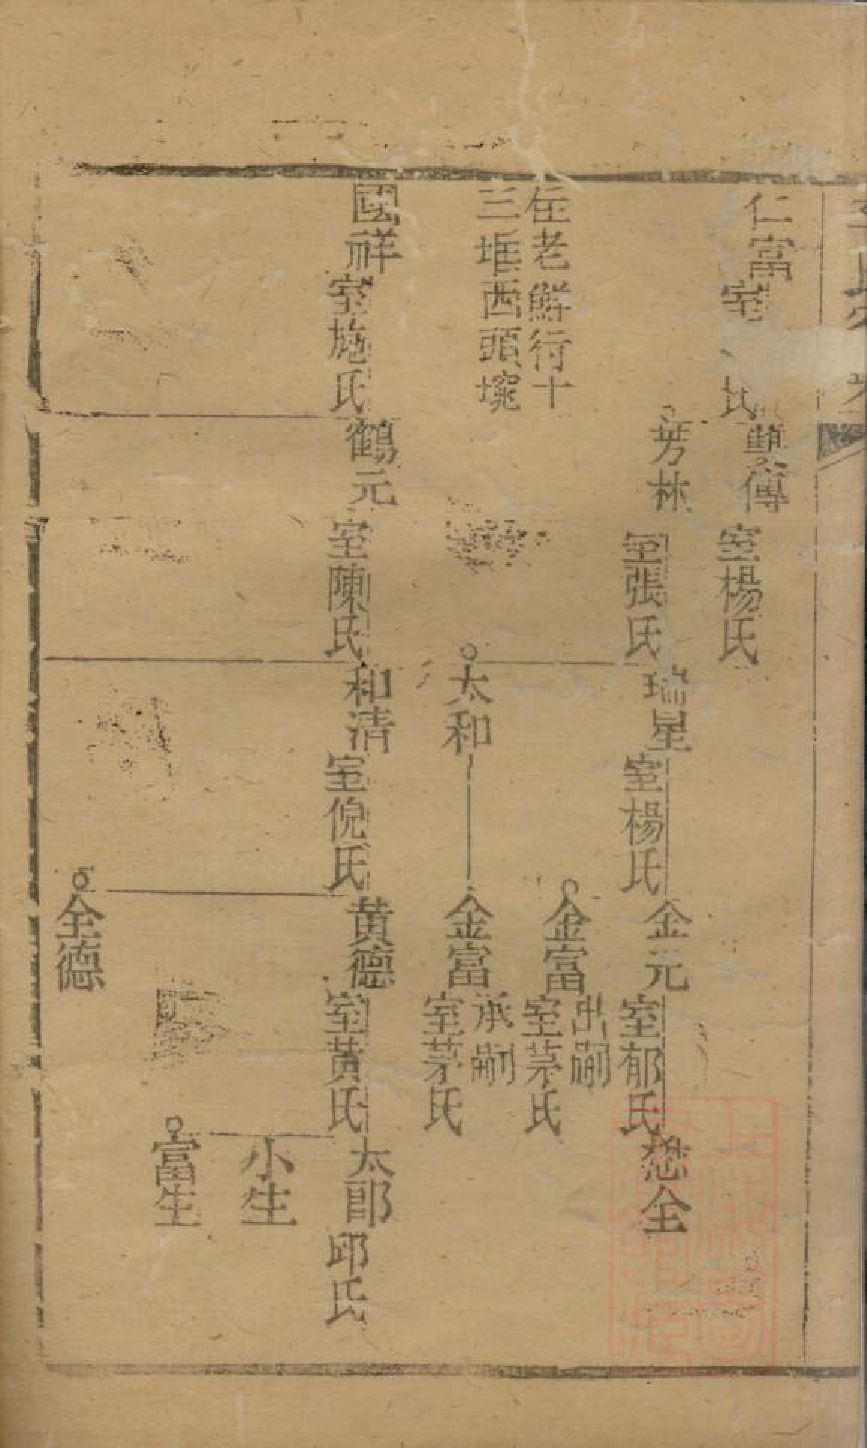 仁富
室 氏
傳
室楊氏
芳林
室張氏
瑞星
室楊氏
金元
室郁氏
愁全
金富
出嗣
室茅氏
住老鮮行十
三堆西頭堍
太和
金富
承嗣
室茅氏
國祥
室施氏
鶴元
室陳氏
和清
室倪氏
黃德
室黃氏
太郎
邱氏
小生
富生
全德